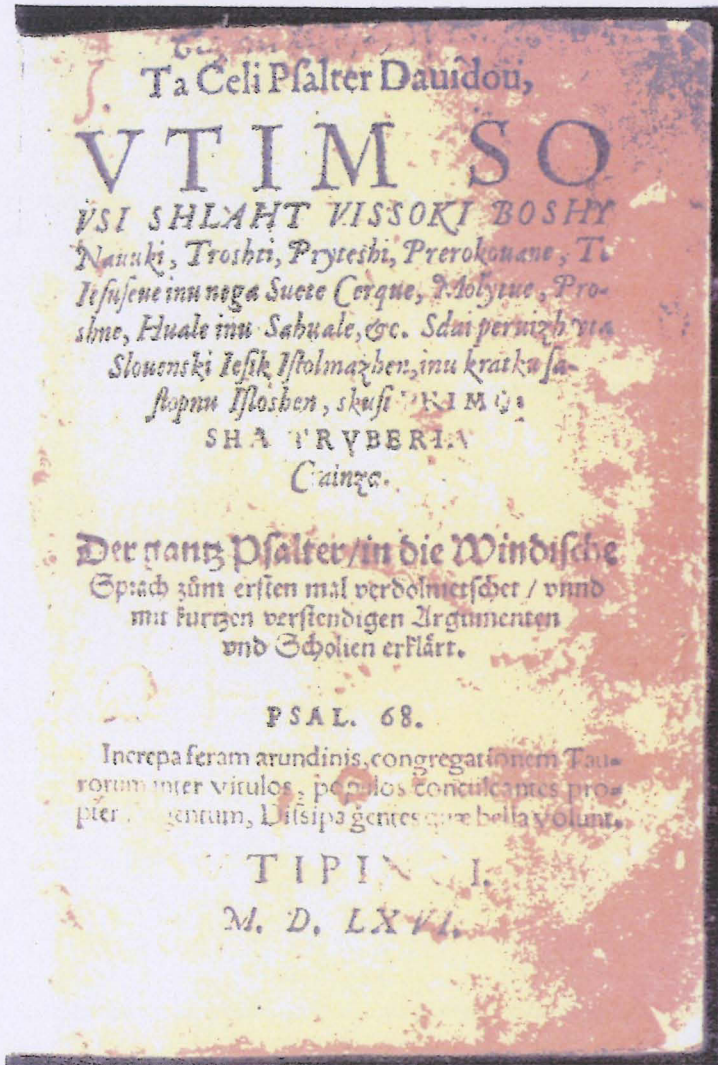 Ta Celi Pſalter Dauidou,
VTIM SO
VSI SHLAHT VISSOKI BOSHY
Nauuki, Troshti, Pryteshi, Prerokouane,
Ieſuſeue inu nega Suete Cerque, Molytue, Pro-
shne, Huale inu Sahuale, &c. Sdai peruizh vta
Slouenski Ieſik Iſtolmazhen, inu kratku ſa-
ſtopnu Iſloshen, skuſi PRIMO-
SHA TRVBERIA
Crainza.
Der gantz Pſalter / in die Windiſche
Sprach zům erſten mal verdolmetſchet / vnnd
mit kurtzen verſtendigen Argumenten
vnd Scholien erklärt.
PSAL. 68.
Increpa feram arundinis, congregationem Tau-
rorum inter vitulos, populos conculcantes pro-
pter gentum, Diſsipa gentes quæ bella volunt.
TIPI I.
M. D. LXVI.